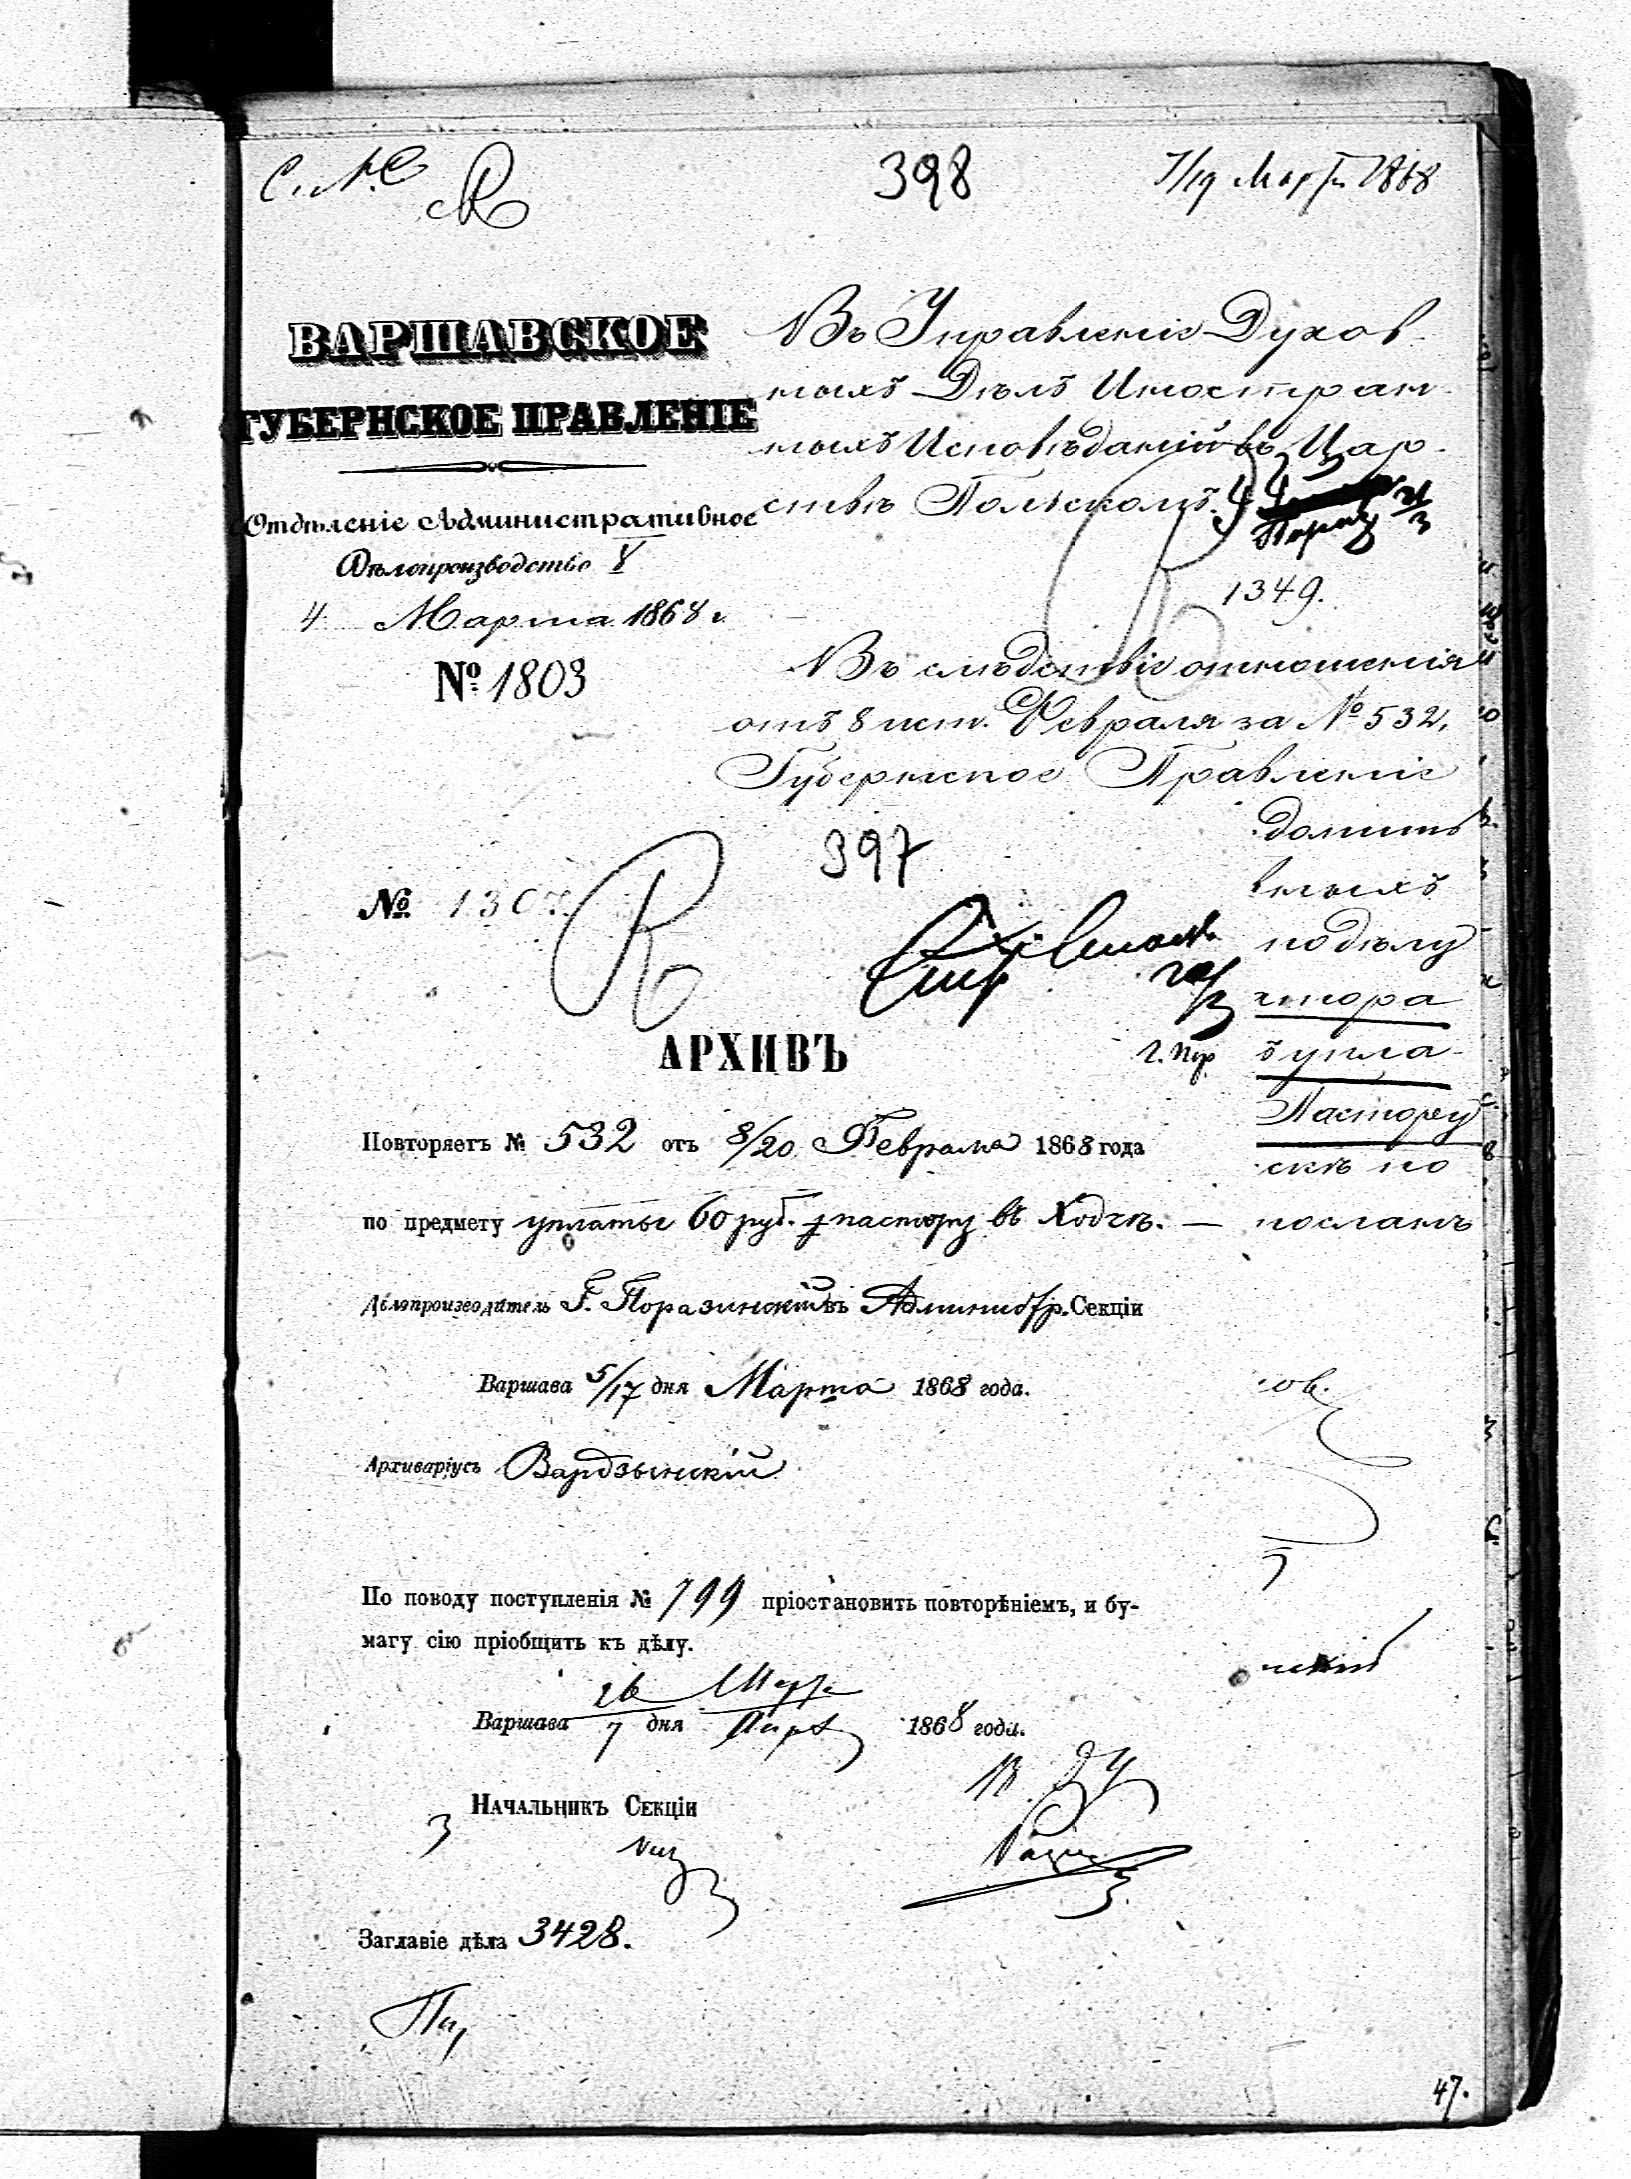 398
Марта 1868
ВАРШАВСКОЕ
ГУБЕРНСКОЕ ПРАВЛЕНІЕ
Отдѣленіе Административное
Дѣлопроизводство V
4 Марта 1868 г.
№ 1803
Въ Управленіе Духов-
ныхъ Дѣлъ Иностран-
ныхъ Исповѣданій въ Цар-
ствѣ Польскомъ.
1349.
Въ слѣдствіе отношенія
отъ 8 ист. Февраля за № 532,
Губернское Правленіе
домить
вныхъ
по дѣлу
тора
ъ упла-
Пастору
скѣ по
посланъ
ов.
скій
397
№ 1307.
АРХИВЪ
Повторяетъ № 532 отъ 8/20 Февраля 1868 года
по предмету уплаты 60 руб. пастору въ Ходчѣ. —
Дѣлопроизводитель Г. Поразинскій въ Администр. Секціи
Варшава 5/17 дня Марта 1868 года.
Архиваріусъ Вардзынскій
По поводу поступленія № 799 пріостановить повторѣніемъ, и бу-
магу сію пріобщить къ дѣлу.
Варшава 26/7 дня 1868 года.
Начальникъ Секціи
Заглавіе дѣла 3428.
47.